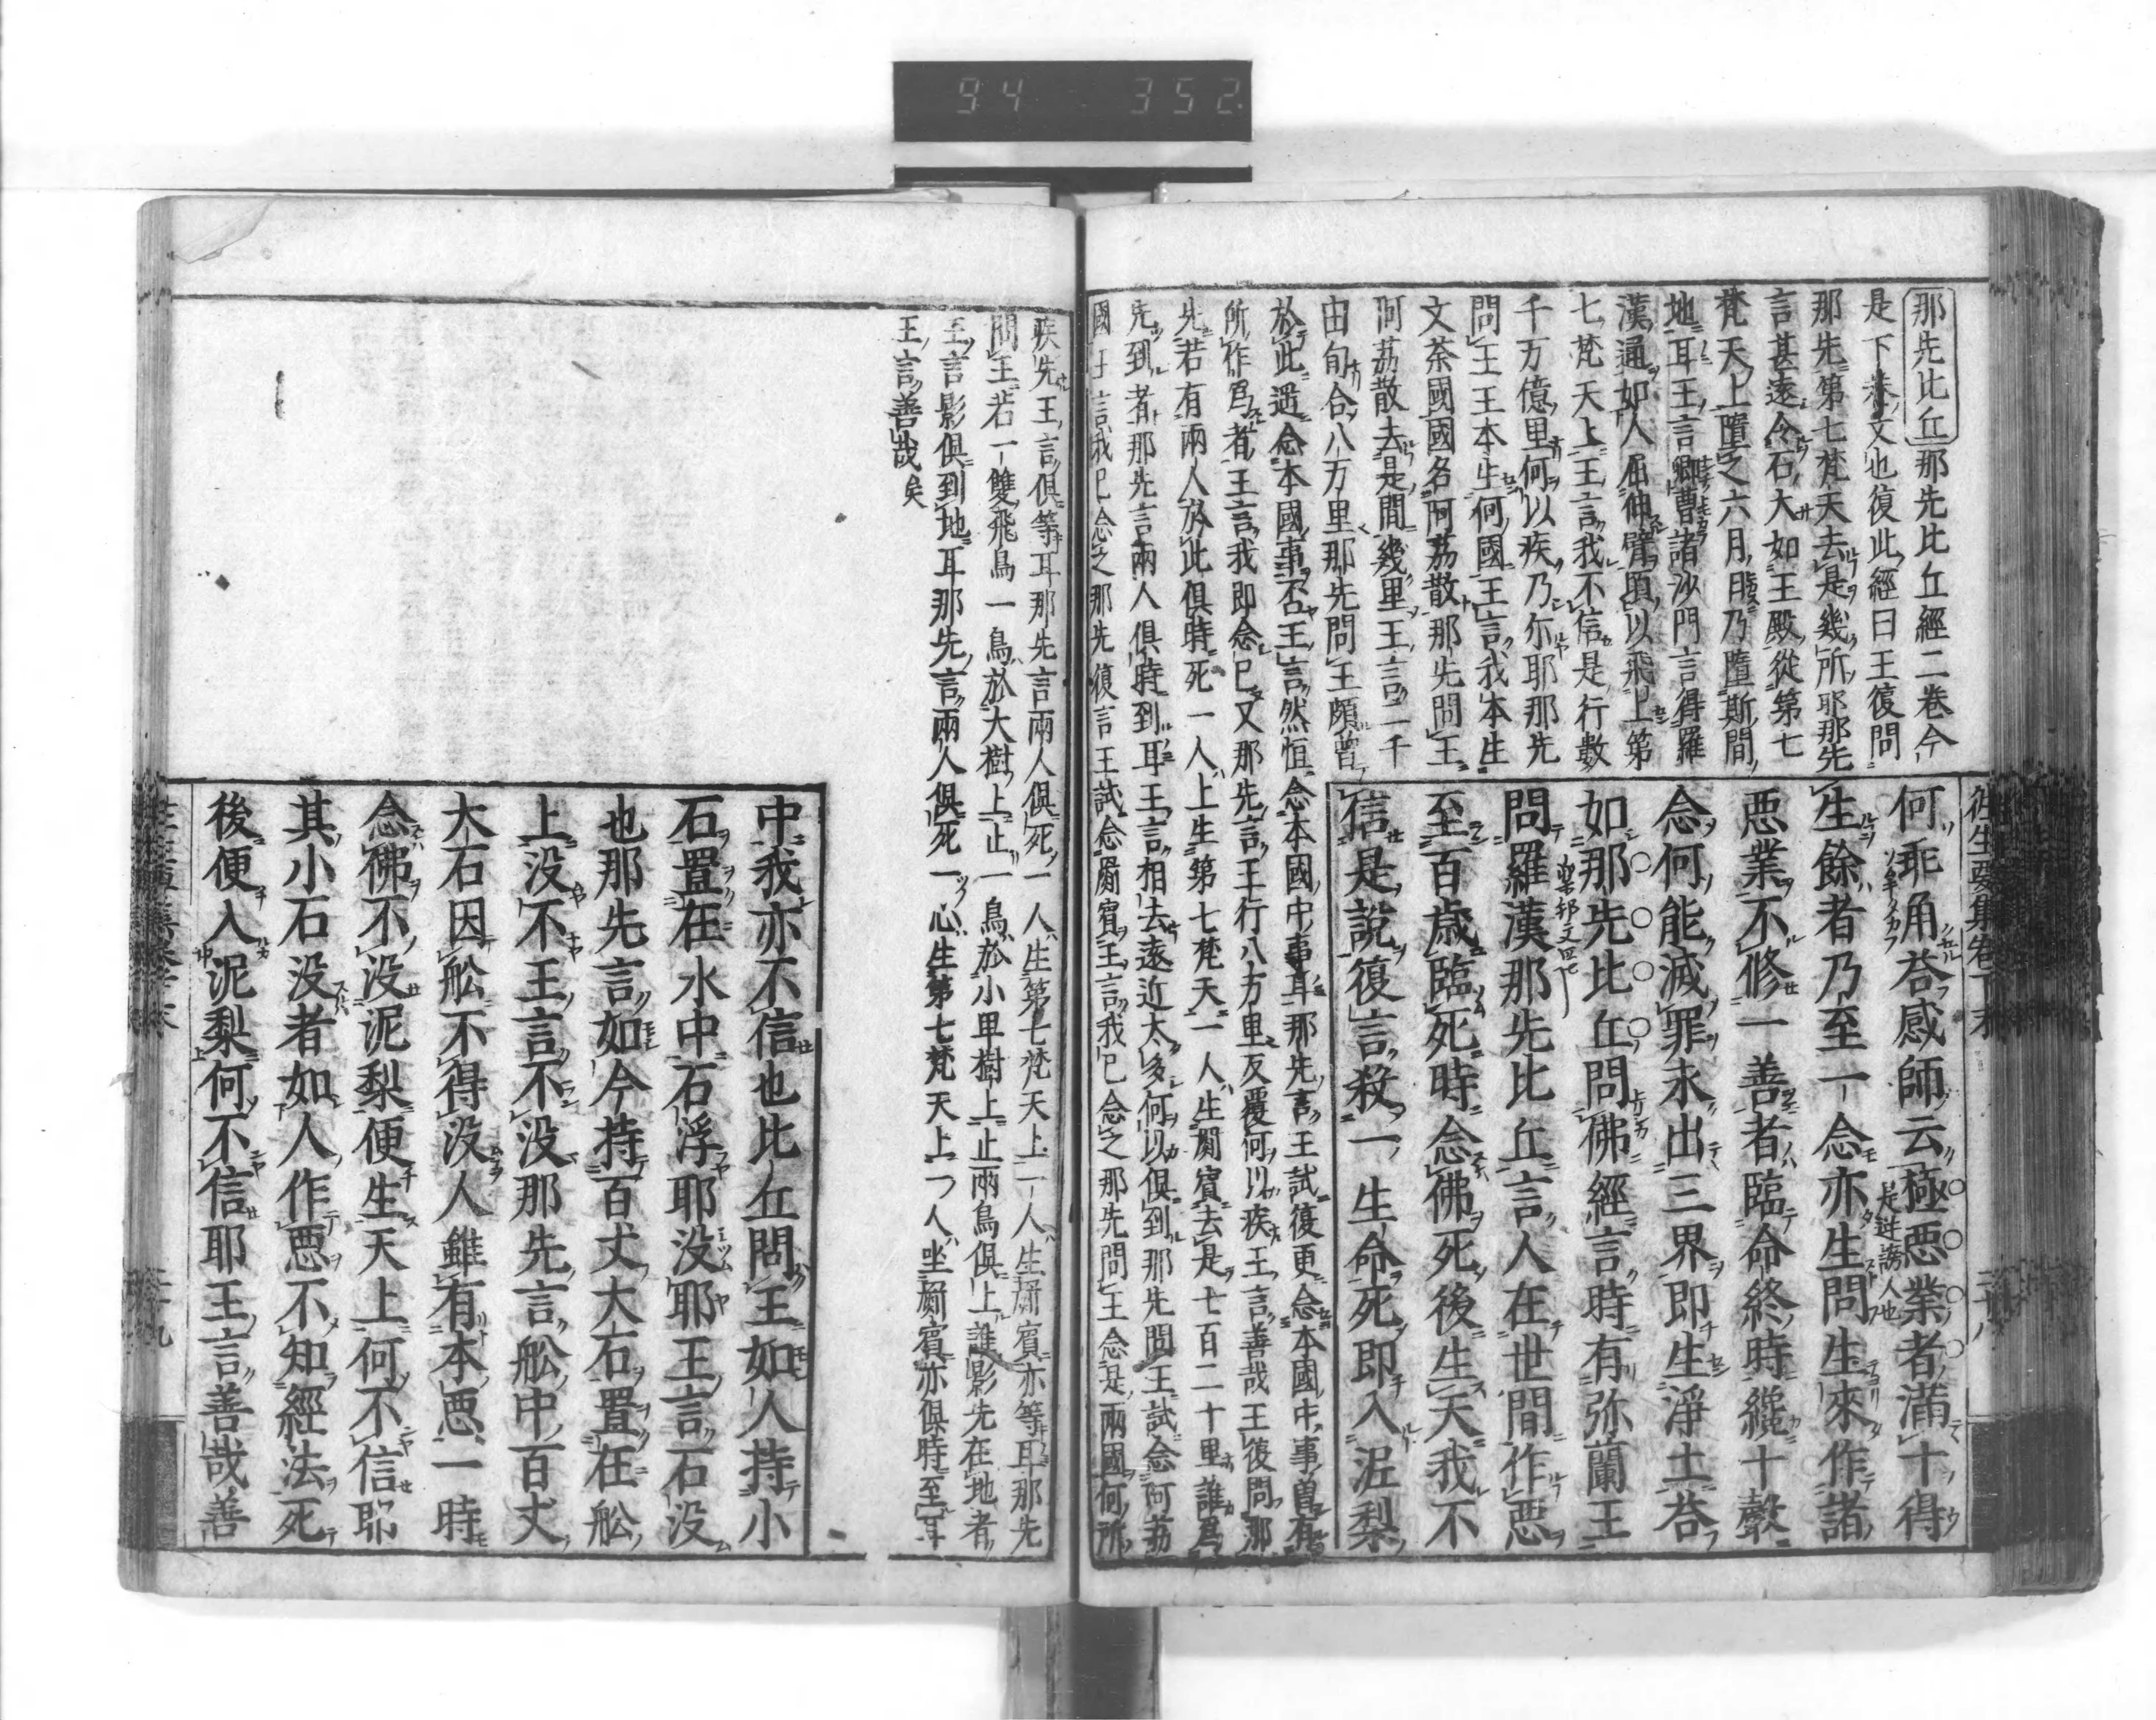 94 352
那先比丘那先比丘經二卷今
是下卷文也復此經曰王復問
那先第七梵天去是幾所耶那先
言甚遠令石大如王殿從第七
梵天上墮之六月日乃墮斯間
地耳王言卿曹諸沙門言得羅
漢通如人屈伸臂頃以飛上第
七梵天上王言我不信是行數
千万億里何以疾乃尓耶那先
問王王本生何國王言我本生
文荼國國名阿荔散那先問王
阿荔散去是間幾里王言二千
由旬合八万里那先問王頗曾
於此遥念本國事否王言然恒念本國中事耳那先言王試復更念本國中事曽有
所作爲者王言我即念已又那先言王行八万里反覆何以疾王言善哉王復問那
先若有兩人於此俱時死一人上生第七梵天一人生罽賓去是七百二十里誰爲
先到者那先言兩人俱時到耳王言相去遠近太多何以俱到那先問王試念阿荔
國王言我已念之那先復言王試念罽賓王言我已念之那先問王念是兩國何所
何乖角荅感師云極惡業者滿十得
是逆謗人也
生餘者乃至一念亦生問生來作諸
惡業不修一善者臨命終時纔十聲
念何能滅罪永出三界即生淨土荅
如那先比丘問佛經言時有弥蘭王
樂邦文四七
問羅漢那先比丘言人在世間作惡
至百歳臨死時念佛死後生天我不
信是說復言殺一生命死即入泥梨
往生要集卷下末
疾先王言俱等耳那先言兩人俱死一人生第七梵天上一人生罽賓亦等耳那先
問王若一雙飛鳥一鳥於大樹上止一鳥於小卑樹上止兩鳥俱上誰影先在地者
王言影俱到地耳那先言兩人俱死一心生第七梵天上一人坐罽賓亦俱時至耳
王言善哉矣
中我亦不信也比丘問王如人持小
石置在水中石浮耶没耶王言石没
也那先言如今持百丈大石置在舩
上没不王言不没那先言舩中百丈
大石因舩不得没人雖有本惡一時
念佛不没泥梨便生天上何不信耶
其小石没者如人作惡不知經法死
後便入泥梨何不信耶王言善哉善